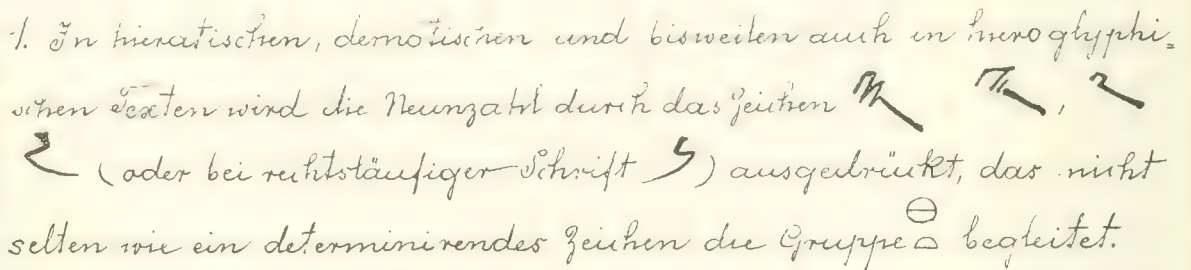 1. In hieratischen, demotischen und bisweilen auch in hieroglyphi=
schen Texten wird die Neunzahl durch das Zeichen , 
(oder bei rechtsläufiger Schrift ) ausgedrückt, das nicht
selten wie ein determinirendes Zeichen die Gruppe 𓐍𓏏 begleitet.